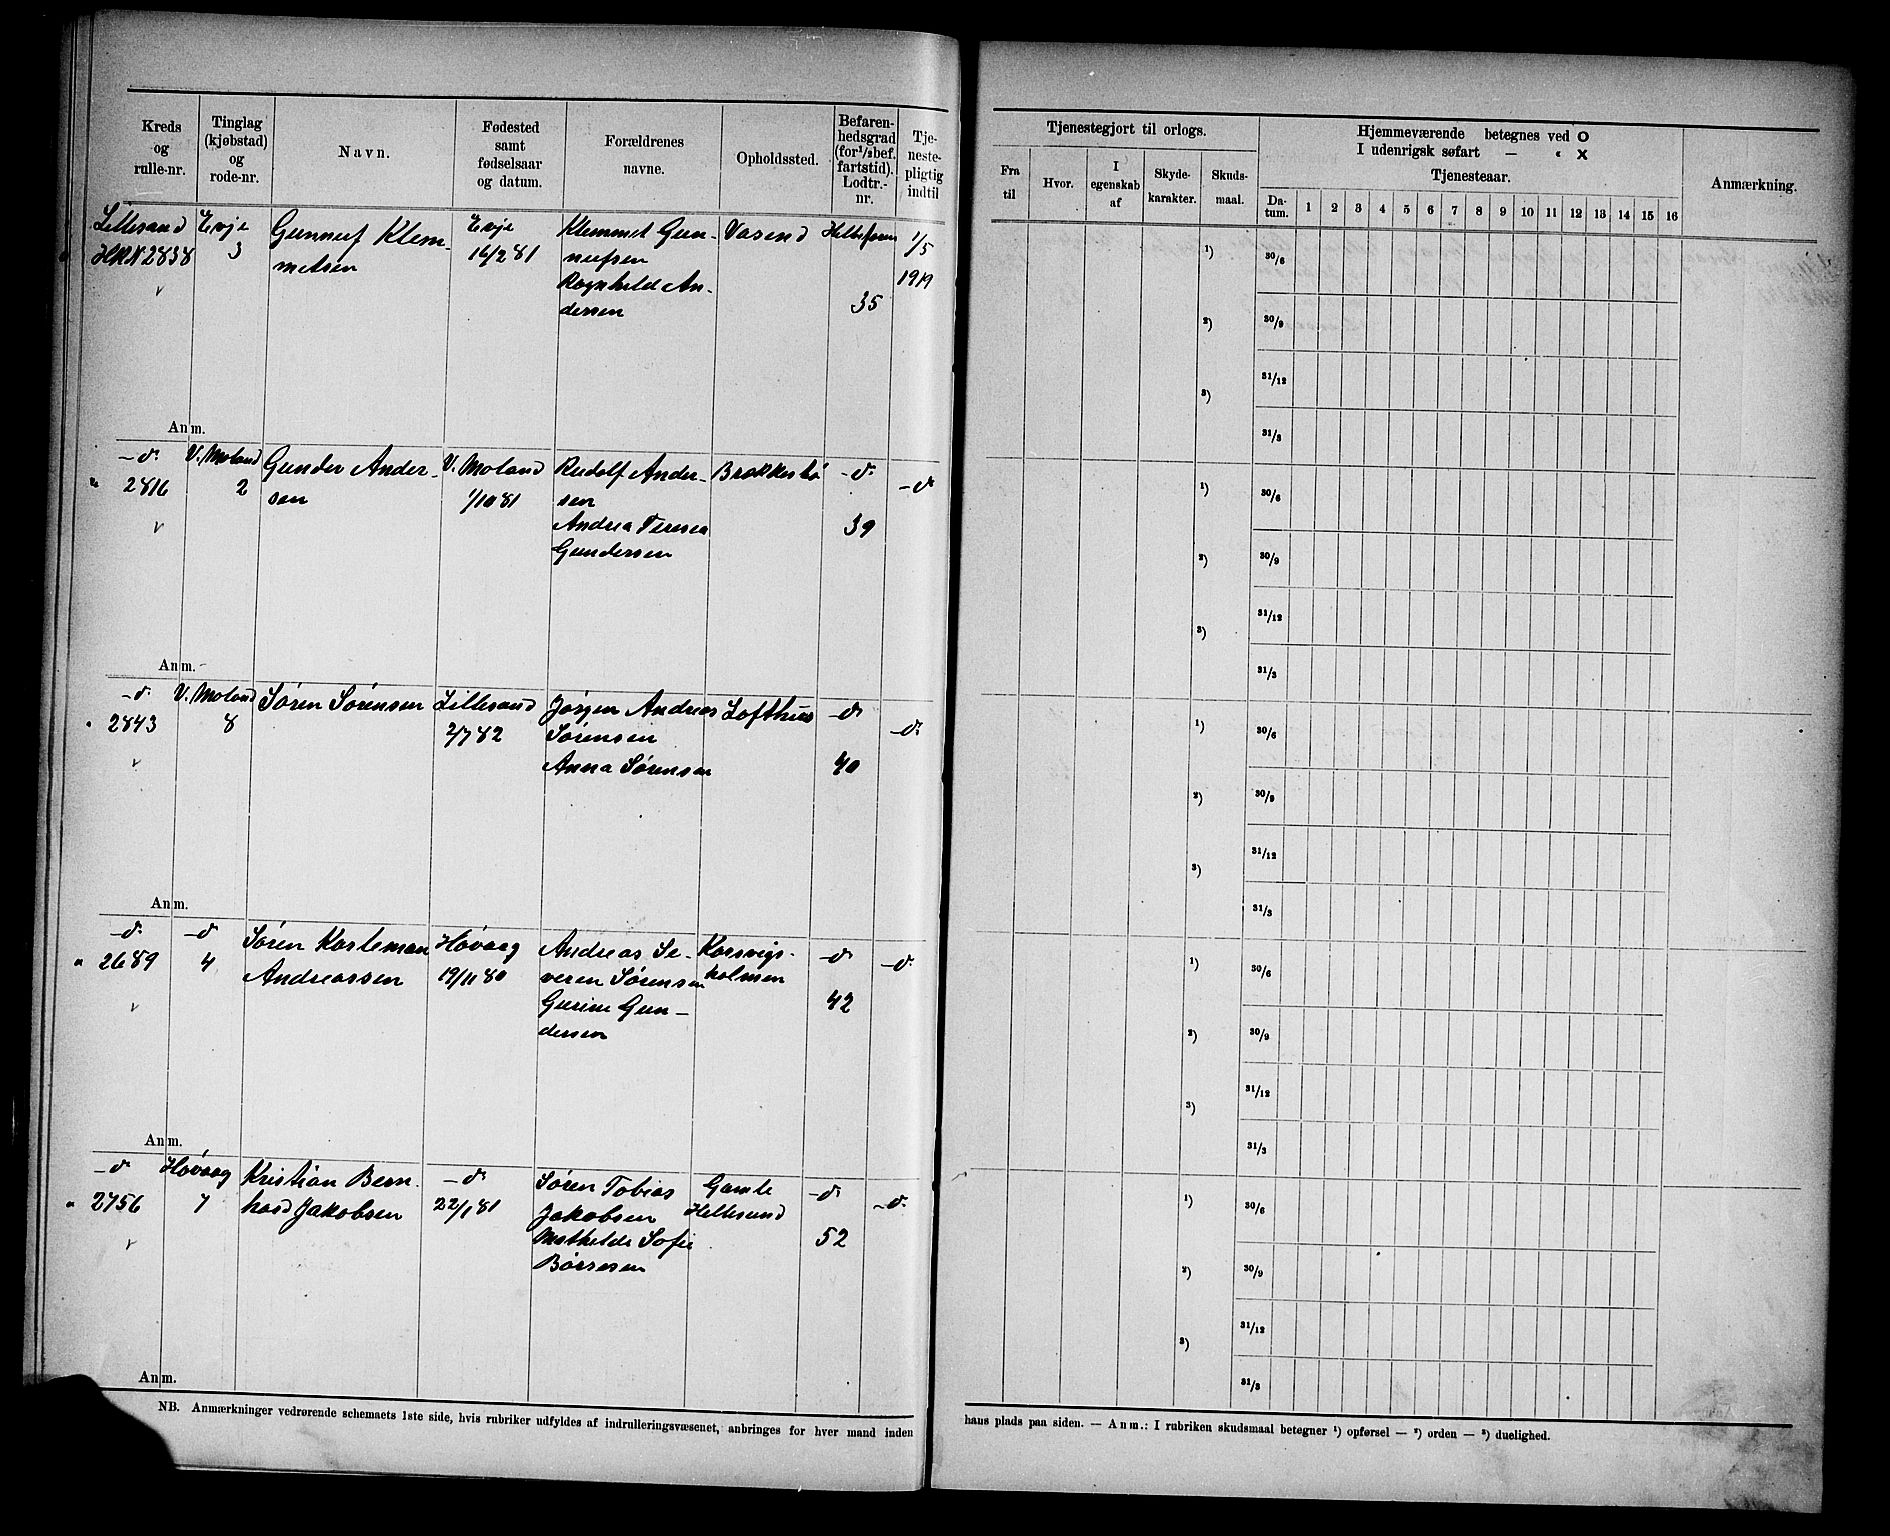 Kreds
og
rulle-nr.
Tinglag
(kjøbstad)
og
rode-nr.
Navn.
Fødested
samt
fødselsaar
og datum.
Forældrenes
navne.
Opholdssted.
Befaren-
hedsgrad
(for 1/2 bef.
fartstid).
Lodtr.-
nr.
Tje-
neste-
pligtig
indtil
Lillesand
HRN 2838
Evje
3
Gunnuf Klem-
metsen
Evje
16/2 81
Klemmet Gun-
nufsen
Ragnhild An-
dersen
Vasend
35
1/5
1919
Anm.
-d-
2816
V. Moland
2
Gunder Ander-
sen
V. Moland
1/10 81
Rudolf Ander-
sen
Andrea Teresea
Gundersen
Brækkestø
-d-
39
-d-
Anm.
-d-
2843
V. Moland
8
Søren Sørensen
Lillesand
2/7 82
Jørgen Andreas
Sørensen
Anna Sørensen
Lofthus
-d-
40
-d-
Anm.
-d-
2689
-d-
4
Søren Karleman
Andreassen
Høvaag
19/11 80
Andreas Se-
veren Sørensen
Gurine Gun-
dersen
Korsvigs-
holmen
-d-
42
-d-
Anm.
-d-
2756
Høvaag
7
Kristian Bern-
hard Jakobsen
-d-
22/1 81
Søren Tobias
Jakobsen
Mathilde Sofie
Børresen
Gamle
Hellesund
-d-
52
-d-
Anm.
NB. Anmærkninger vedrørende schemaets 1ste side, hvis rubriker udfyldes af indrulleringsvæsenet, anbringes for hver mand inden
Tjenestegjort til orlogs.
Fra
til
Hvor.
I
egenskab
af
Skyde-
karakter.
Skuds-
maal.
Hjemmeværende betegnes ved O
I udenrigsk søfart — " X
Tjenesteaar.
Da-
tum.
1 2 3 4 5 6 7 8 9 10 11 12 13 14 15 16
Anmærkning.
1) 30/6
2) 30/9
31/12
3)
31/3
1) 30/6
2) 30/9
31/12
3)
31/3
1) 30/6
2) 30/9
31/12
3)
31/3
1) 30/6
2) 30/9
31/12
3)
31/3
1) 30/6
2) 30/9
31/12
3)
31/3
hans plads paa siden. — Anm.: I rubriken skudsmaal betegner 1) opførsel — 2) orden — 3) duelighed.